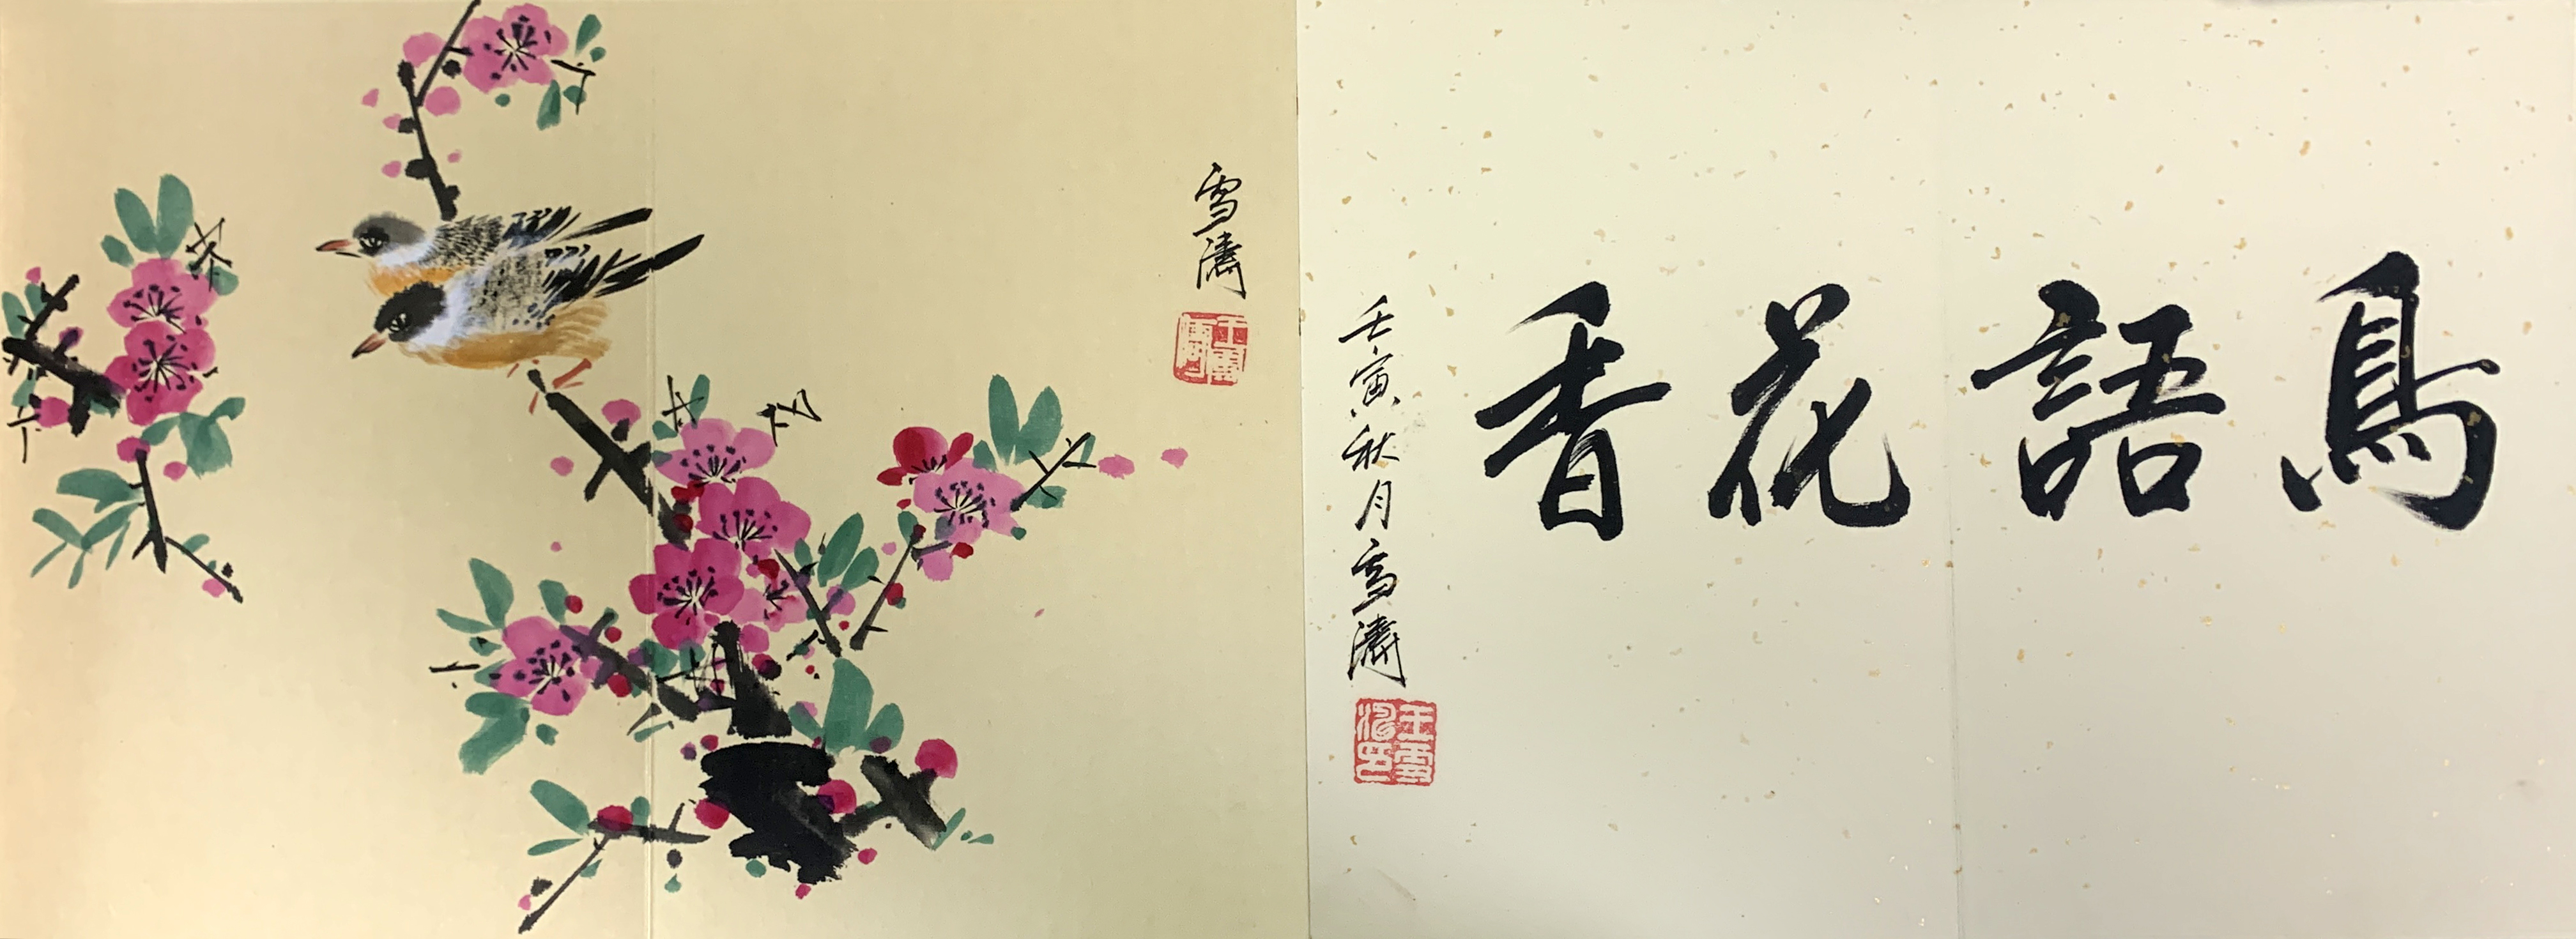 鳥語花香
壬寅秋月雪濤
王雪濤印
雪濤
王雪濤